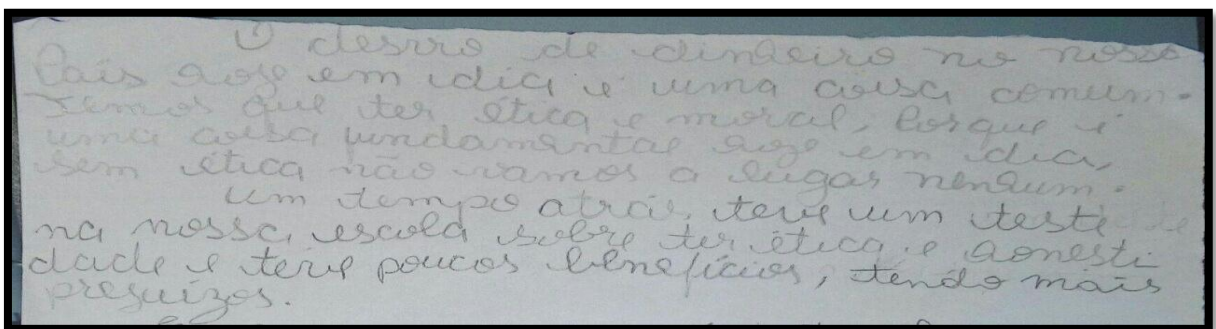 O desvio de dinheiro no nosso
País hoje em dia é uma coisa comum.
Temos que ter ética e moral, Porque é
uma coisa fundamental hoje em dia,
sem ética não vamos a lugar nenhum.
Um tempo atrás, teve um teste
na nossa escola sobre ter ética e honesti
dade e teve poucos benefícios, tendo mais
prejuízos.